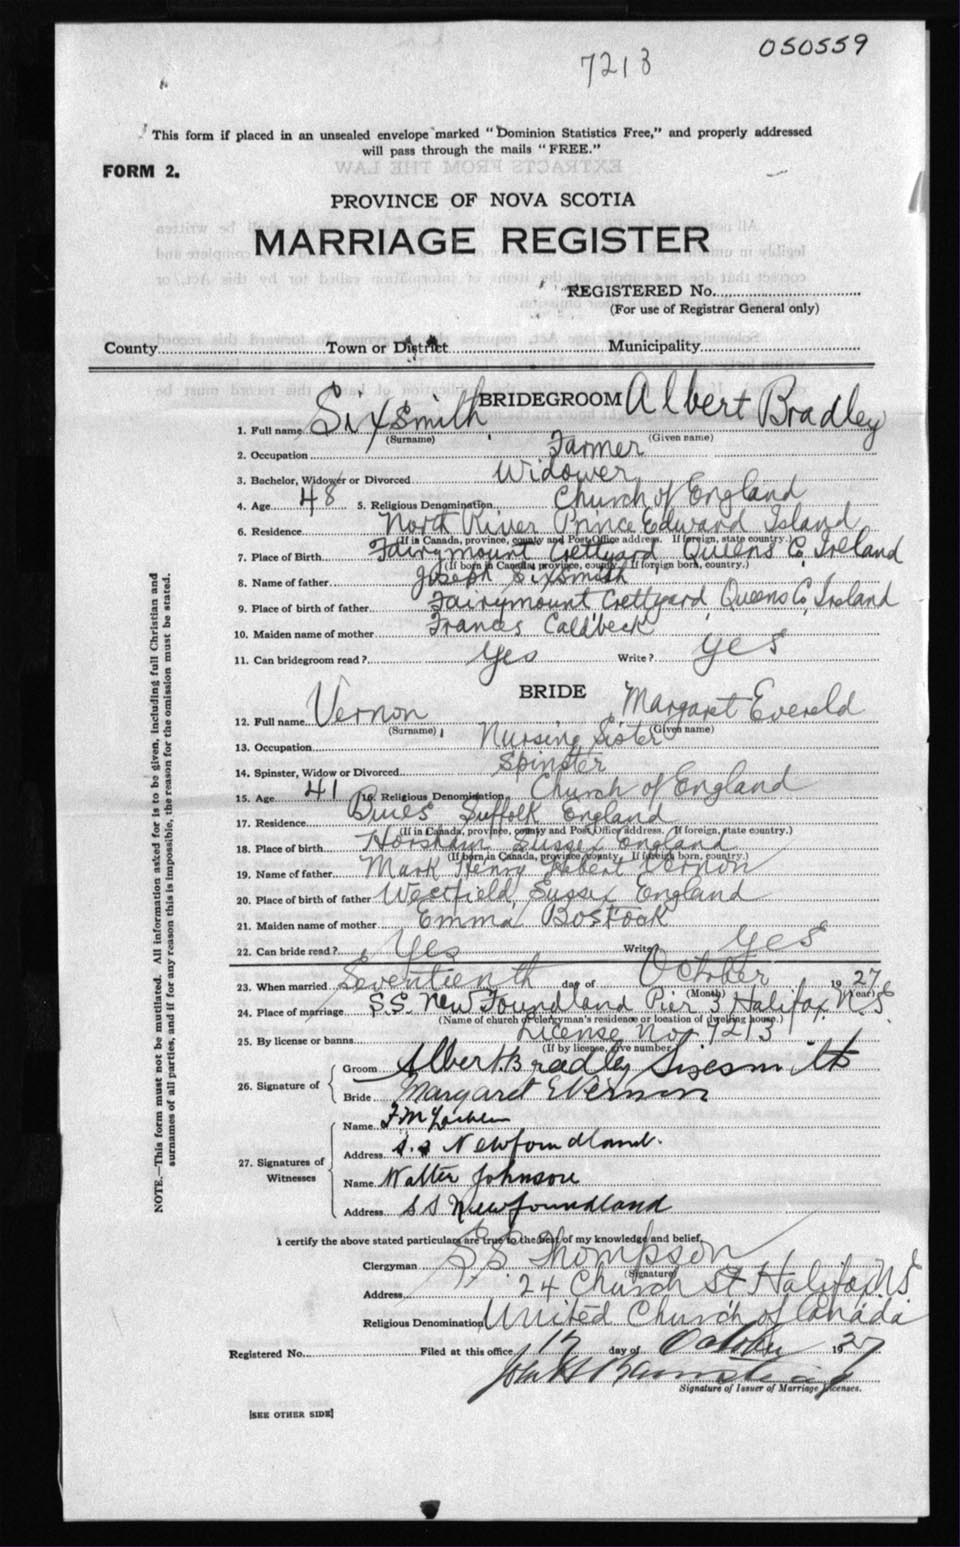 050559
7213
This form if placed in an unsealed envelope marked "Dominion Statistics Free," and properly addressed
will pass through the mails "FREE."
FORM 2.
EXTRACTS FROM THE LAW
PROVINCE OF NOVA SCOTIA
MARRIAGE REGISTER
REGISTERED No.
(For use of Registrar General only)
County Town or District Municipality
BRIDEGROOM
1. Full name Sixsmith Albert Bradley
(Surname) (Given name)
2. Occupation Farmer
3. Bachelor, Widower or Divorced Widower
4. Age 48 5. Religious Denomination Church of England
6. Residence North River Prince Edward Island
(If in Canada, province, county and Post Office address. If foreign, state country.)
7. Place of Birth Fairymount Crettyard Queens Co, Ireland
(If born in Canada, province, county. If foreign born, country.)
8. Name of father Joseph Sixsmith
9. Place of birth of father Fairymount Crettyard, Queens Co, Ireland
10. Maiden name of mother Frances Caldbeck
11. Can bridegroom read? Yes Write? yes
BRIDE
12. Full name Vernon Margaret Evereld
(Surname) (Given name)
13. Occupation Nursing Sister
14. Spinster, Widow or Divorced Spinster
15. Age 41 16. Religious Denomination Church of England
17. Residence Suffolk England
(If in Canada, province, county and Post Office address. If foreign, state country.)
18. Place of birth Horsham Sussex England
(If born in Canada, province, county. If foreign born, country.)
19. Name of father Mark Henry Robert Vernon
20. Place of birth of father Westfield, Sussex England
21. Maiden name of mother Emma Bostock
22. Can bride read? Yes Write? yes
23. When married Seventienth day of October 1927
(Month) (Year)
24. Place of marriage S.S. New Foundland Pier 3 Halifax N.S.
(Name of church or clergyman's residence or location of dwelling house.)
25. By license or banns License No. 7213
(If by license, give number)
26. Signature of
Groom Albert Bradley Sixsmith
Bride Margaret E Vernon
27. Signatures of Witnesses
Name F M
Address S.S Newfoundland.
Name Walter Johnson
Address S S Newfoundland
I certify the above stated particulars are true to the best of my knowledge and belief,
Clergyman Thompson
(Signature)
Address 24 Church St Halifax N.S
Religious Denomination United Church of Canada
Registered No. Filed at this office 17 day of October 1927
Signature of Issuer of Marriage Licenses.
[SEE OTHER SIDE]
NOTE.—This form must not be mutilated. All information asked for is to be given, including full Christian and
surnames of all parties, and if for any reason this is impossible, the reason for the omission must be stated.